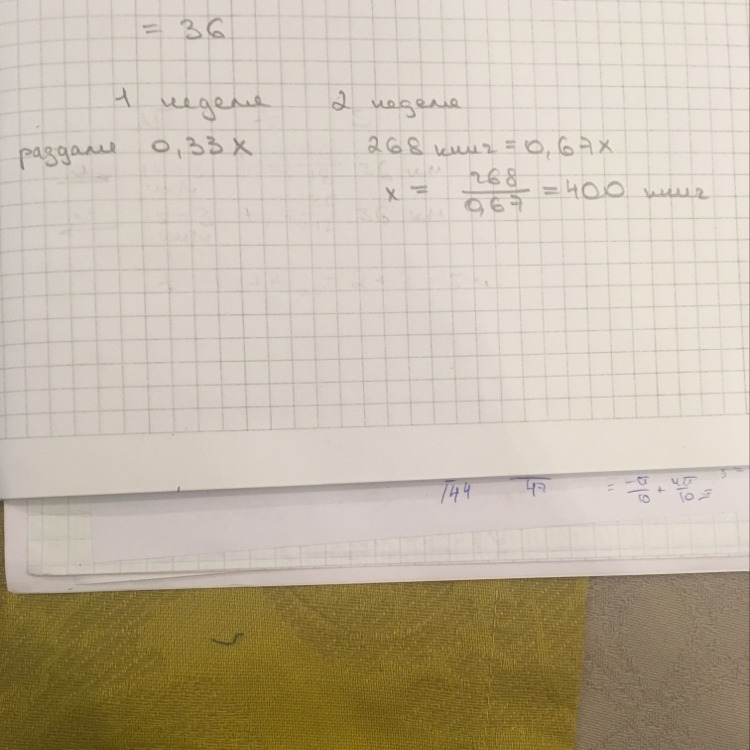 = 36
1 неделя 2 неделя
раздали 0,33x 268 книг = 0,67x
x = 268/0,67 = 400 книг
144 47 = -π/10 + 4π/10 =